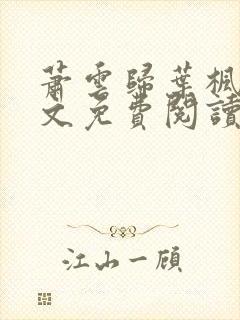 蕭雲歸葉楓
文免費閱讀
江山一顧